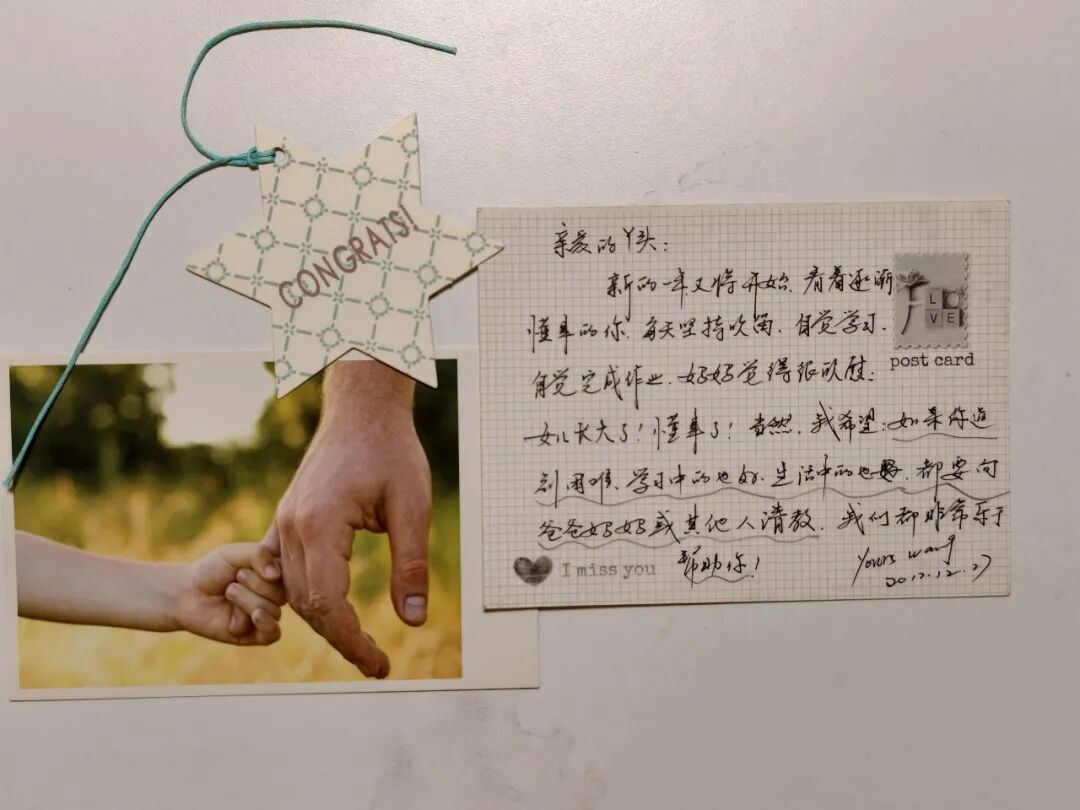 CONGRATS!
亲爱的丫头:
新的一年又将开始、看着逐渐
懂事的你、每天坚持吹笛、自觉学习、
自觉完成作业、妈妈觉得很欣慰:
女儿长大了!懂事了!当然、我希望:如果你遇
到困难、学习中的也好、生活中的也好、都要向
爸爸妈妈或其他人请教、我们都非常乐于
帮助你!
LOVE
post card
I miss you
Yours wang
2017.12.27